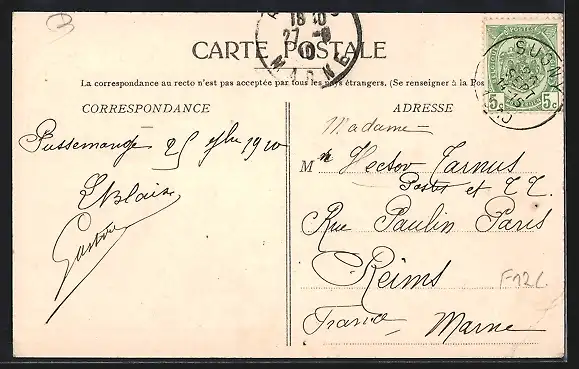 CARTE POSTALE
La correspondance au recto n'est pas acceptée par tous les pays étrangers. (Se renseigner à la Pos
CORRESPONDANCE
Pussemange 25 1910
E Blaise
Gaston
ADRESSE
Madame
M Hector Jarnus
Postes et T T.
Rue Paulin Paris
Reims
France Marne
F12L
18 10
27 -9
10
MARNE
SUGNY
5c 5c